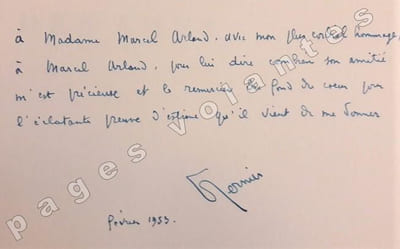 à Madame Marcel Arland. avec mon plus cordial hommage,
à Marcel Arland. pour lui dire combien son amitié
m'est précieuse et le remercier du fond du coeur pour
l'éclatante preuve d'estime qu'il vient de me donner
février 1953.
pages volantes